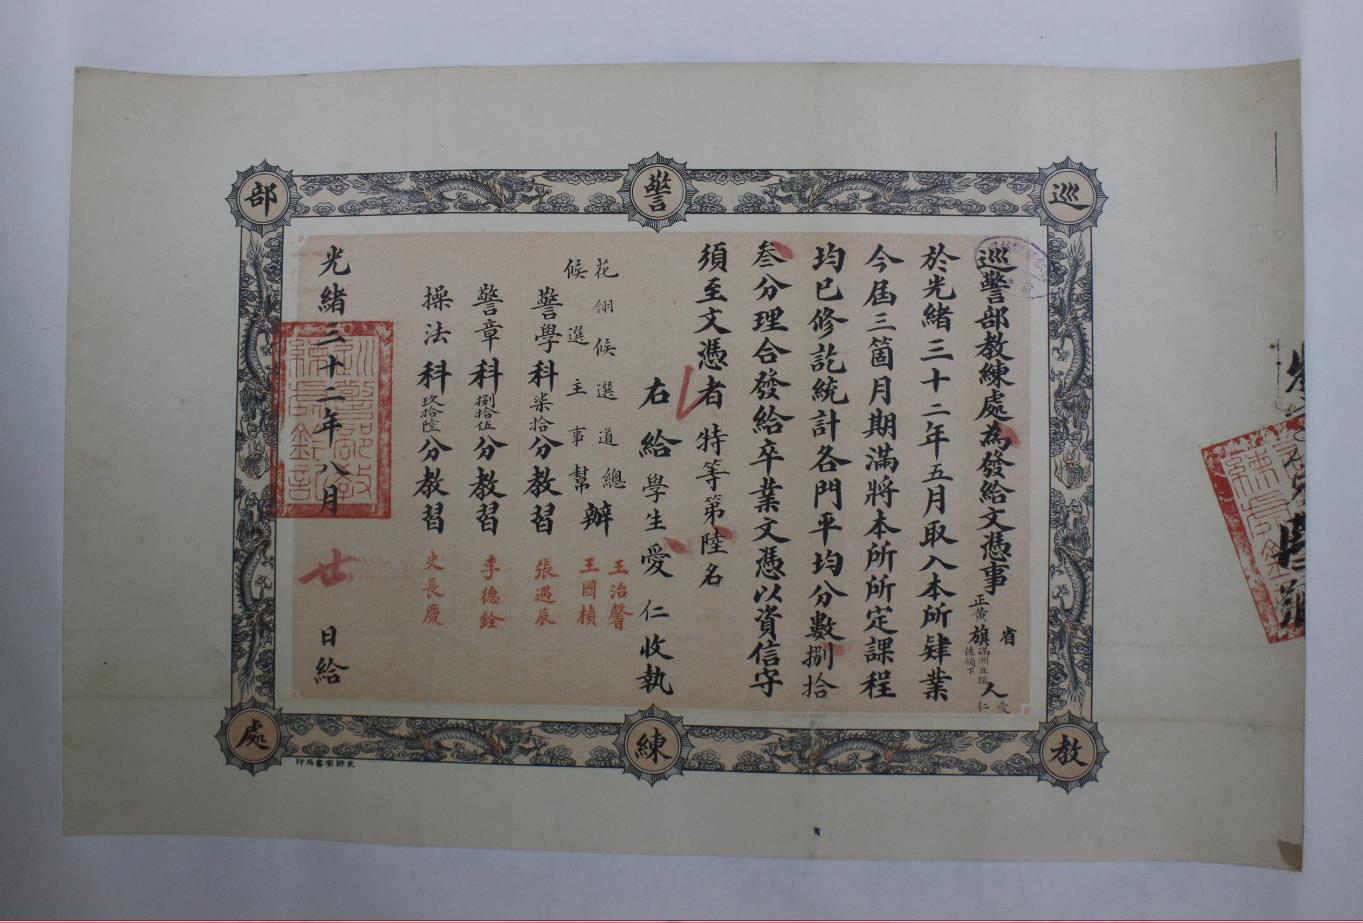 巡警部
教練處
巡警部教練處為發給文憑事
省
正黃旗滿洲
佐領下
人
愛仁
於光緒三十二年五月取入本所肄業
今屆三箇月期滿將本所所定課程
均已修訖統計各門平均分數捌拾
叁分理合發給卒業文憑以資信守
須至文憑者 特等第陸名
右給學生愛仁收執
花翎候選道總辦王治馨
候選主事幫辦王國楨
警學科柒拾分教習張遇辰
警章科捌拾伍分教習李德銓
操法科玖拾陸分教習史長慶
光緒三十二年八月廿日給
京師官書局印